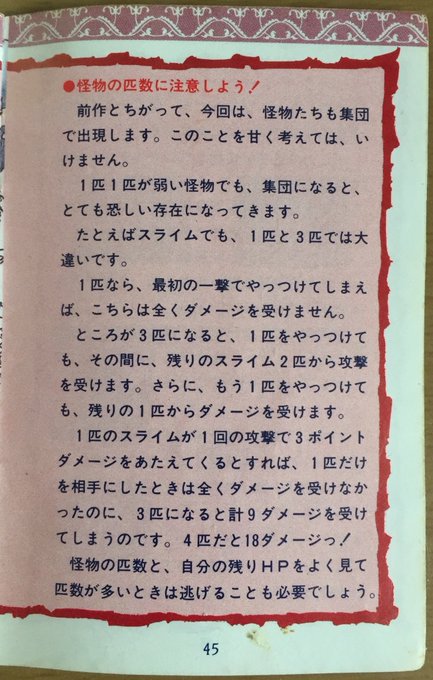 ●怪物の匹数に注意しよう！
前作とちがって、今回は、怪物たちも集団
で出現します。このことを甘く考えては、い
けません。
１匹１匹が弱い怪物でも、集団になると、
とても恐しい存在になってきます。
たとえばスライムでも、１匹と３匹では大
違いです。
１匹なら、最初の一撃でやっつけてしまえ
ば、こちらは全くダメージを受けません。
ところが３匹になると、１匹をやっつけて
も、その間に、残りのスライム２匹から攻撃
を受けます。さらに、もう１匹をやっつけて
も、残りの１匹からダメージを受けます。
１匹のスライムが１回の攻撃で３ポイント
ダメージをあたえてくるとすれば、１匹だけ
を相手にしたときは全くダメージを受けなか
ったのに、３匹になると計９ダメージを受け
てしまうのです。４匹だと18ダメージっ！
怪物の匹数と、自分の残りＨＰをよく見て
匹数が多いときは逃げることも必要でしょう。
45